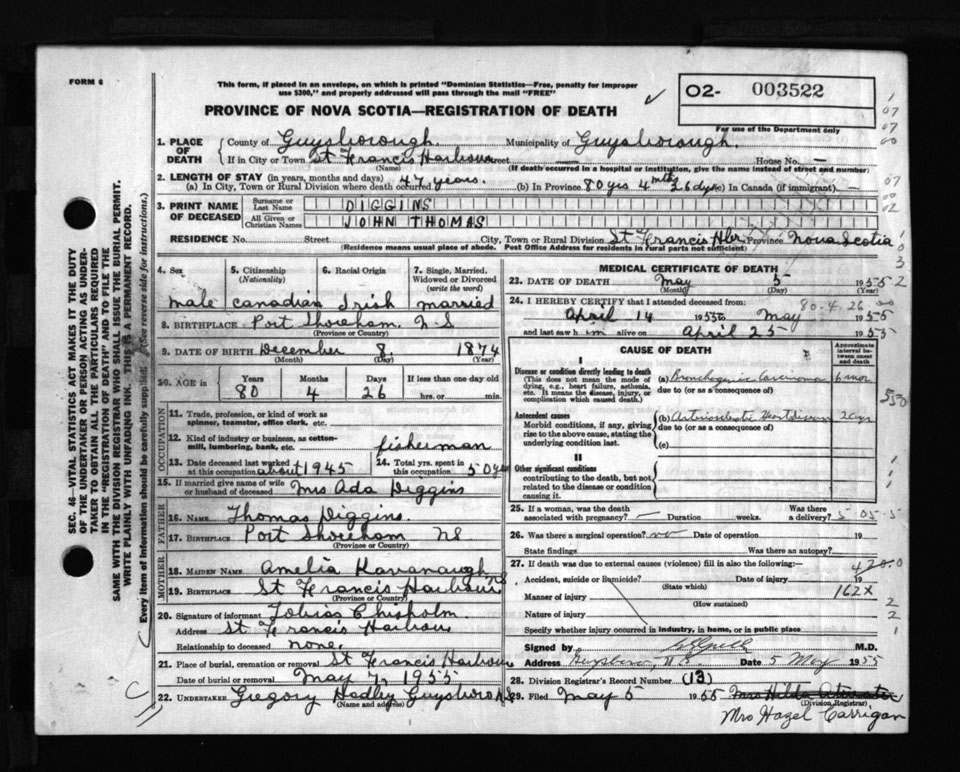 FORM 6
This form, if placed in an envelope, on which is printed "Dominion Statistics—Free, penalty for improper
use $300," and properly addressed will pass through the mail "FREE"
02- 003522
For use of the Department only
PROVINCE OF NOVA SCOTIA—REGISTRATION OF DEATH
1. PLACE OF DEATH { County of Guysborough. Municipality of Guysborough.
If in City or Town St Francis Harbour Street — House No. —
(Name) (If death occurred in a hospital or institution, give the name instead of street and number)
2. LENGTH OF STAY (in years, months and days)
(a) In City, Town or Rural Division where death occurred 47 years. (b) In Province 80 yrs 4 mths 26 dys (c) In Canada (if immigrant) —
3. PRINT NAME OF DECEASED
Surname or Last Name DIGGINS
All Given or Christian Names JOHN THOMAS
RESIDENCE No. Street City, Town or Rural Division St Francis Hbr. Province Nova Scotia
(Residence means usual place of abode. Post Office Address for residents in rural parts not sufficient)
4. Sex 5. Citizenship (Nationality) 6. Racial Origin 7. Single, Married, Widowed or Divorced (write the word)
male canadian Irish married
8. BIRTHPLACE Port Shoreham. N S
(Province or Country)
9. DATE OF BIRTH December 8, 1874
(Month) (Day) (Year)
10. AGE in Years Months Days If less than one day old
80 4 26 hrs. or min.
OCCUPATION
11. Trade, profession, or kind of work as
spinner, teamster, office clerk, etc.
12. Kind of industry or business, as cotton-
mill, lumbering, bank, etc. fisherman
13. Date deceased last worked at this occupation about 1945 14. Total yrs. spent in this occupation 50 yrs
15. If married give name of wife
or husband of deceased Mrs Ada Diggins
FATHER
16. NAME Thomas Diggins.
17. BIRTHPLACE Port Shoreham NS
(Province or Country)
MOTHER
18. MAIDEN NAME Amelia Kavanaugh
19. BIRTHPLACE St Francis Harbour NS
(Province or Country)
20. Signature of informant Tobias Chisholm
Address St Francis Harbour
Relationship to deceased none.
21. Place of burial, cremation or removal St Francis Harbour
Date of burial or removal May 7, 1955
22. UNDERTAKER Gregory Hadley Guysboro NS
(Name and address)
MEDICAL CERTIFICATE OF DEATH
23. DATE OF DEATH May 5 1955
(Month) (Day) (Year)
24. I HEREBY CERTIFY that I attended deceased from: 80-4-26
April 14 1955 to May 1955
and last saw him alive on April 25 1955
CAUSE OF DEATH
Approximate interval between onset and death
I
Disease or condition directly leading to death
(This does not mean the mode of dying, e.g., heart failure, asthenia, etc. It means the disease, injury, or complication which caused death.)
(a) Bronchogenic Carcinoma 6 mos
due to (or as a consequence of)
Antecedent causes
Morbid conditions, if any, giving rise to the above cause, stating the underlying condition last.
(b) Arteriosclerotic Heart disease 2 yrs
due to (or as a consequence of)
(c)
II
Other significant conditions
contributing to the death, but not related to the disease or condition causing it.
25. If a woman, was the death Was there
associated with pregnancy? — Duration weeks. a delivery?
26. Was there a surgical operation? no Date of operation 19
State findings Was there an autopsy?
27. If death was due to external causes (violence) fill in also the following:—
Accident, suicide or homicide? Date of injury 19
(State which)
Manner of injury 162X
(How sustained)
Nature of injury
Specify whether injury occurred in industry, in home, or in public place
Signed by M.D.
Address Guysboro, N.S. Date 5 May 1955
28. Division Registrar's Record Number (13)
29. Filed May 5 1955 Mrs Hilda
(Division Registrar)
Mrs Hazel Carrigan
SEC. 46—VITAL STATISTICS ACT MAKES IT THE DUTY
OF THE UNDERTAKER OR PERSON ACTING AS UNDER-
TAKER TO OBTAIN ALL THE PARTICULARS REQUIRED
IN THE "REGISTRATION OF DEATH" AND TO FILE THE
SAME WITH THE DIVISION REGISTRAR WHO SHALL ISSUE THE BURIAL PERMIT.
WRITE PLAINLY WITH UNFADING INK. THIS IS A PERMANENT RECORD.
Every item of Information should be carefully supplied. (See reverse side for instructions.)